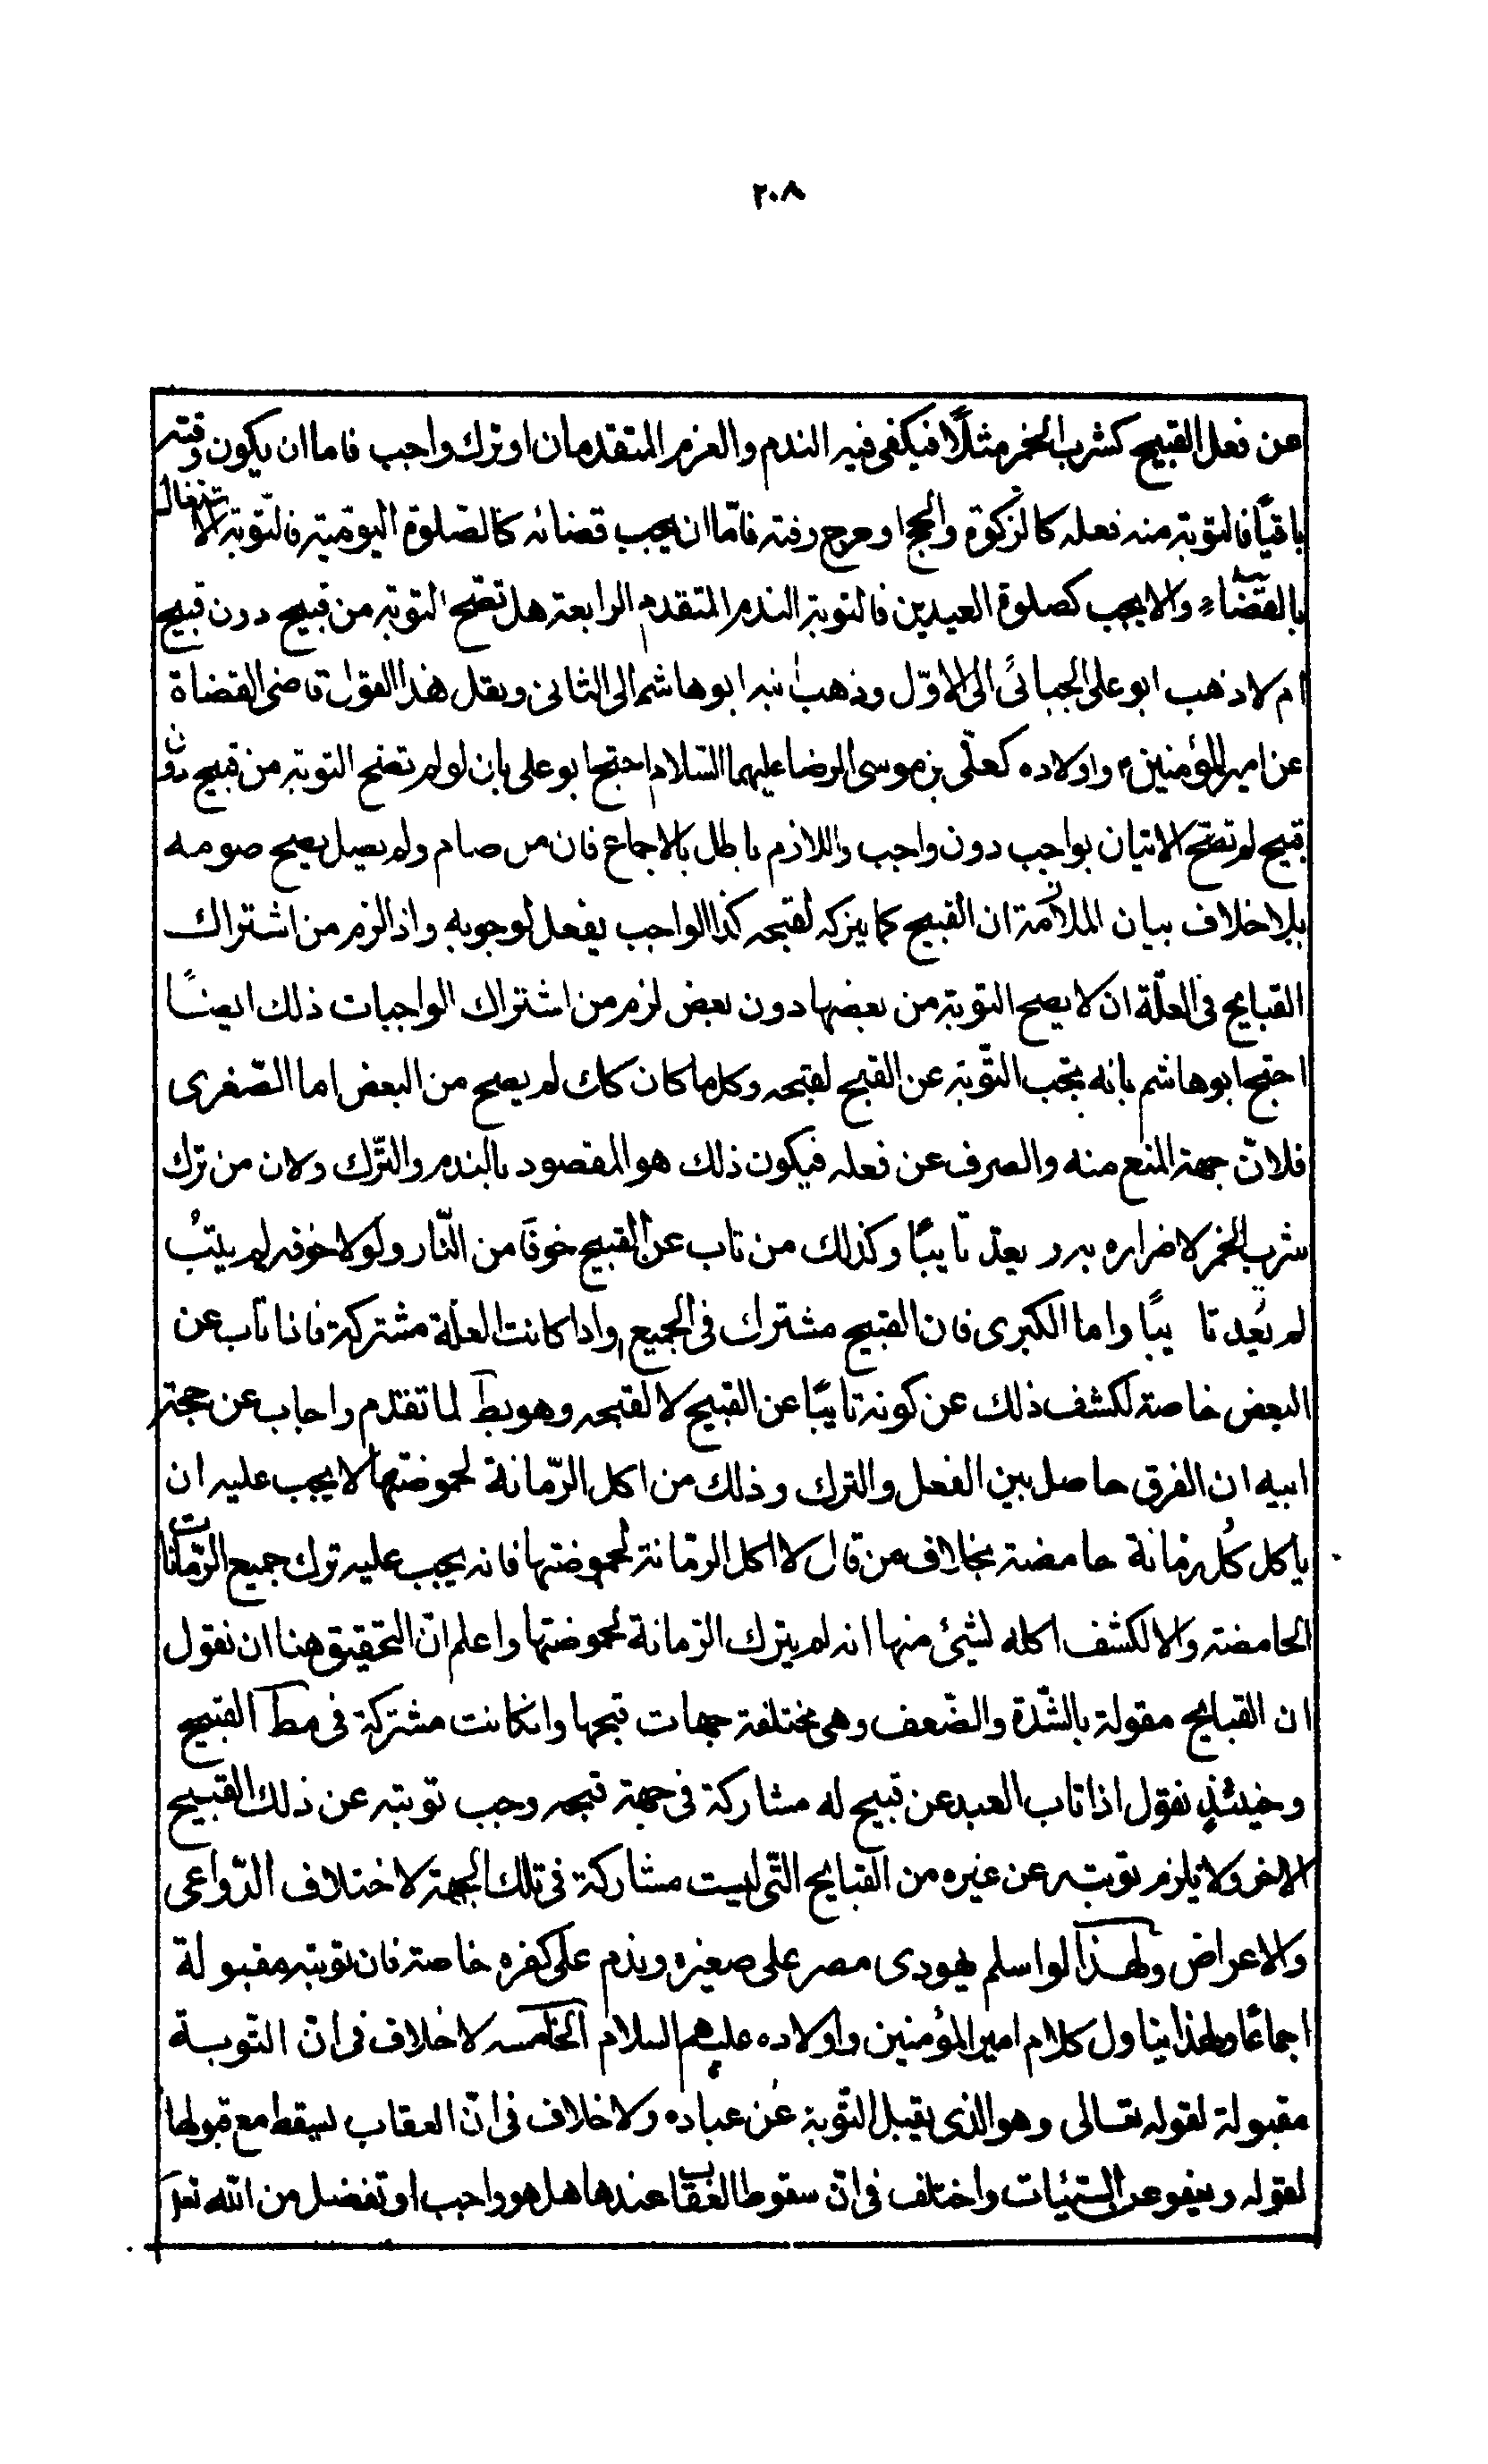 ٢٠٨
عن فعل القبيح كشرب الخمر مثلًا فيكفى فيه الندم والعزم المتقدمان او ترك واجب فاما ان يكون وقته
باقيًا فالتوبة منه فعله كالزكوة والحج او خرج وقته فامّا ان يجب قضائه كالصّلوة اليوميّة فالتّوبة الاشتغال
بالقضاء والا يجب كصلوة العيدين فالتوبة الندم المتقدم الرابعة هل تصحّ التوبة من قبيح دون قبيح
ام لا ذهب ابو على الجبائى الى الاوّل وذهب ابنه ابو هاشم الى الثانى ونقل هذا القول قاضى القضاة
عن امير المؤمنين ء واولاده كعلّى بن موسى الرضا عليهما السّلام احتج ابو على بان لو لم تصح التوبة من قبيح دون
قبيح لم تصحّ الاتيان بواجب دون واجب واللازم باطل بالاجماع فان من صام ولم يصل يصح صومه
بلا خلاف بيان الملازمة ان القبيح كما يترك لقبحه كذا الواجب يفعل لوجوبه واذا لزم من اشتراك
القبايح فى العلّة ان لا يصح التوبة من بعضها دون بعض لزم من اشتراك الواجبات ذلك ايضًا
احتج ابو هاشم بانه يجب التّوبة عن القبيح لقبحه وكل ما كان كك لم يصح من البعض اما الصّغرى
فلانّ جهة المنع منه والصرف عن فعله فيكون ذلك هو المقصود بالندم والتّرك ولان من ترك
شرب الخمر لاضراره به لم يعدّ تايبًا وكذلك من تاب عن القبيح خوفًا من النّار ولولا خوفه لم يتبُ
لم يُعد تا يبًا واما الكبرى فان القبيح مشترك فى الجميع واذا كانت العلّة مشتركة فاذا تاب عن
البعض خاصة لكشف ذلك عن كونه تايبًا عن القبيح لا لقبحه وهو بط لما تقدم واجاب عن حجة
ابيه ان الفرق حاصل بين الفعل والترك وذلك من اكل الرّمانة لحموضتها لا يجب عليه ان
ياكل كُل رمانة حامضة بخلاف من قال لا اكل الرمّانة لحموضتها فانه يجب عليه ترك جميع الرّمّانات
الحامضة والا لكشف اكله لشيئ منها انه لم يترك الرمانة لحموضتها واعلم انّ التحقيق هنا ان نقول
ان القبايح مقولة بالشّدة والضّعف وهى مختلفة جهات قبحها وانكانت مشتركة فى مط القبيح
وحينئذٍ نقول اذا تاب العبد عن قبيح له مشاركة فى جهة قبحه وجب توبته عن ذلك القبيح
الاخر ولا يلزم توبته عن غيره من القبايح التّى ليست مشاركة فى تلك الجهة لاختلاف الدّواعى
والاعراض ولهذا لو اسلم يهودى مصر على صغيره وندم على كفره خاصة فان توبته مقبولة
اجماعًا ولهذا يتاول كلام امير المؤمنين واولاده عليهم السلام الخامسه لا خلاف فى انّ التوبة
مقبولة لقوله تعالى وهو الذى يقبل التّوبة عن عباده ولا خلاف فى انّ العقاب يسقط مع قبولها
لقوله ويعفو عن السّيّئات واختلف فى انّ سقوط العقاب عندها هل هو واجب او تفضل من اللّه تعر